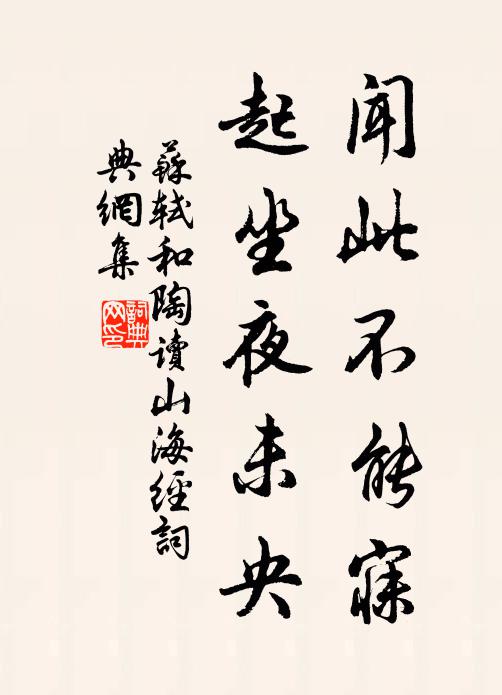 聞此不能寐
起坐夜未央
蘇軾和陶讀山海經詞
典網集
詞典
网印